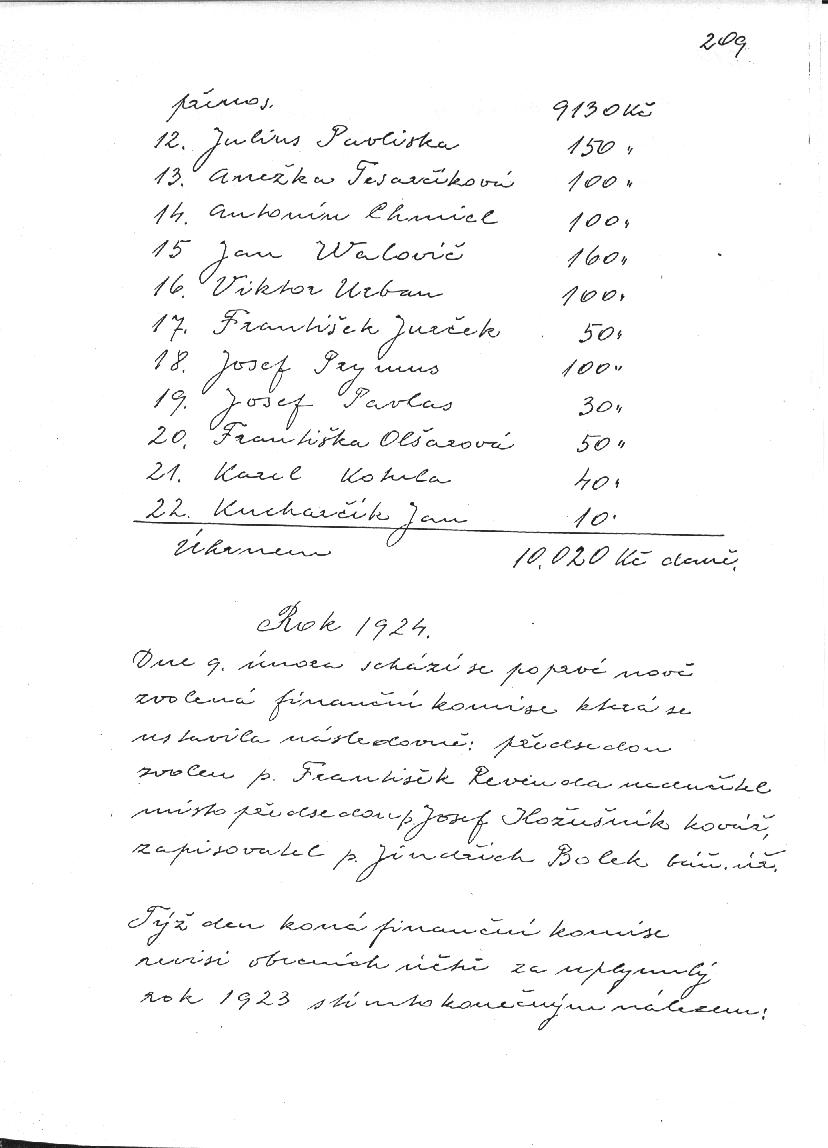 209
přenos. 9130 Kč
12. Julius Pavliska 150 "
13. Anežka Tesarčíková 100 "
14. Antonín Chmiel 100 "
15 Jan Walovič 160 "
16. Viktor Urban 100 "
17. František Jurček 50 "
18. Josef Prymus 100 "
19. Josef Pavlas 30 "
20. Františka Olšarová 50 "
21. Karel Kotula 40 "
22. Kucharčík Jan 10 "
Úhrnem 10.020 Kč daně.
Rok 1924.
Dne 9. února schází se poprvé nově
zvolená finanční komise která se
ustavila následovně: předsedou
zvolen p. František Revenda nadučitel
místopředsedou p Josef Kožušník kovář,
zapisovatel p. Jindřich Bolek báň. úř.
Týž den koná finanční komise
revisi obecních účtů za uplynulý
rok 1923 s tímto konečným nálezem: